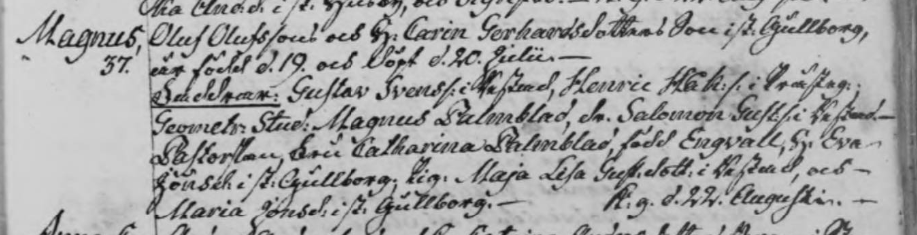 Magnus, Oluf Olufssons och H: Carin Gerhardsdotters Son i st: Gullborg,
37. är född d. 19. och Döpt d. 20. Julii. —
Faddrar: Gustav Svenss: i Wästad, Henric Håk:s: i Prästeg:
Geometr: Stud: Magnus Palmblad, dr. Salomon Gusts: i Wästad. —
Pastorskan, Fru Catharina Palmblad, född Engvall, H: Eva
Jönsd: i st: Gullborg, Pig: Maja Lisa Gust:dott: i Wästad, och —
Maria Jönsd: i st: Gullborg. — K. g. d. 22. Augusti. —